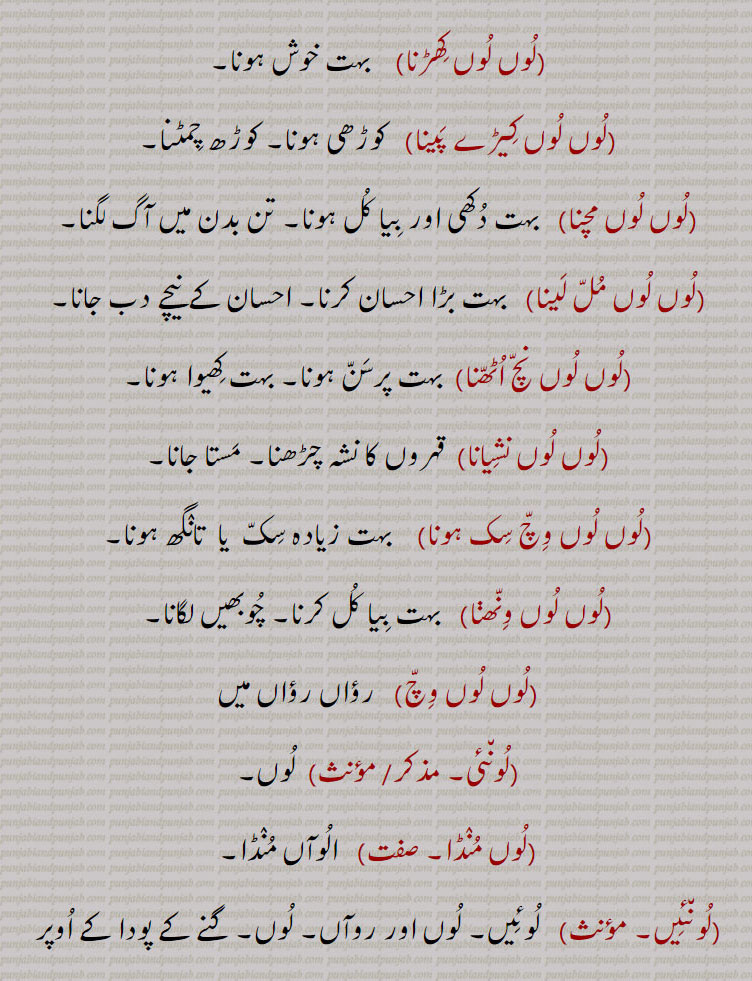 (لُوں لُوں کِھڑنا) بہت خوش ہونا۔
(لُوں لُوں کِیڑے پَینا) کوڑھی ہونا۔ کوڑھ چِمٹنا۔
(لُوں لُوں مچنا) بہت دُکھی اور بِیا کُل ہونا۔ تن بدن میں آگ لگنا۔
(لُوں لُوں مُلّ لَینا) بہت بڑا احسان کرنا۔ احسان کے نیچے دب جانا۔
(لُوں لُوں نچّ اُٹھّنا) بہت پرسَنّ ہونا۔ بہت کِھیوا ہونا۔
(لُوں لُوں نشِیانا) قہروں کا نشہ چڑھنا۔ مَستا جانا۔
(لُوں لُوں وِچّ سِک ہونا) بہت زیادہ سِکّ یا تانگھ ہونا۔
(لُوں لُوں وِنّھنا) بہت بِیا کُل کرنا۔ چُوبھیں لگانا۔
(لُوں لُوں وِچّ) رؤاں رؤاں میں
(لُونّئی۔ مذکر/ مؤنث) لُوں۔
(لُوں مُنْڈا۔ صفت) الُوآں مُنْڈا۔
(لُونّئِیں۔ مؤنث) لُوئِیں۔ لُوں اور روآں۔ لُوں۔ گنے کے پودا کے اُوپر